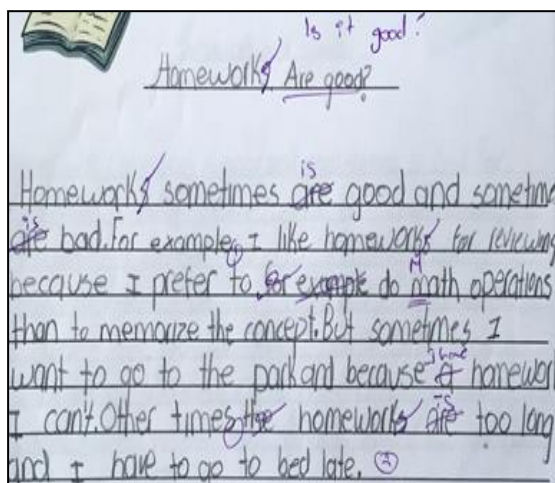 Is it good?
Homeworks Are good?
is
Homeworks sometimes are good and sometim
is
are bad. For example, I like homeworks for reviewing
because I prefer to for example do math operations
than to memorize the concept. But sometimes I
want to go to the park and because homewor
I can't. Other times the homeworks are too long
is
and I have to go to bed late. 2